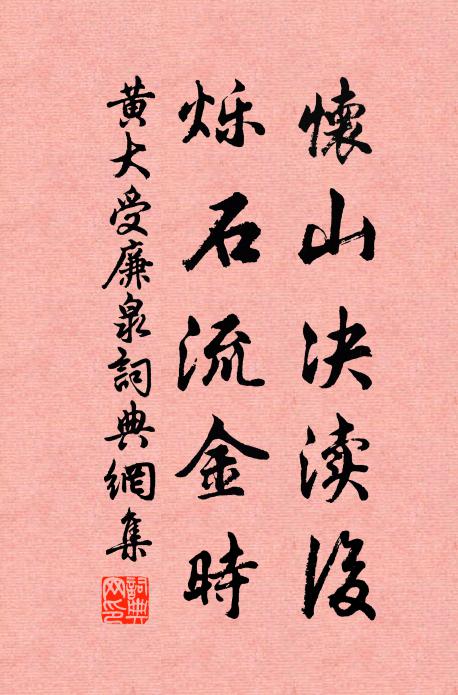 懷山决渎後
烁石流金時
黃大受廉泉詞典網集
詞典
网印